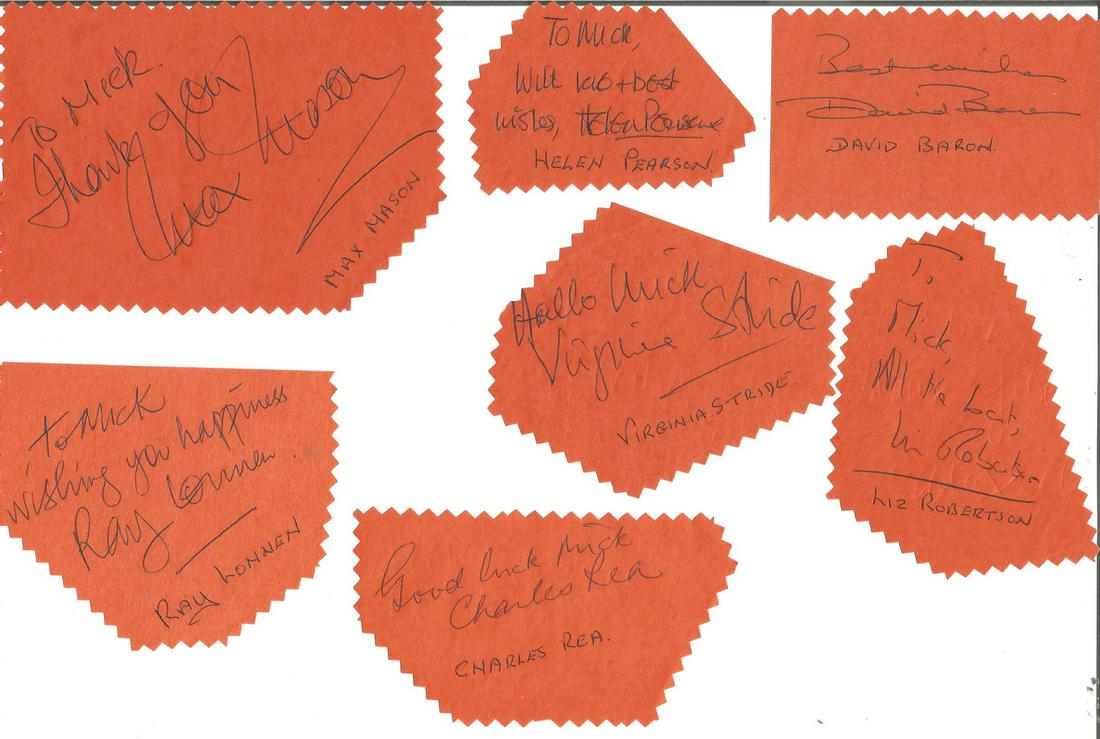 To Mick.
Thank you
Max Mason
MAX MASON
To Mick,
With love + best
wishes, Helen Pearson
HELEN PEARSON.
Best wishes
David Baron
DAVID BARON.
Hello Mick
Virginia Stride
VIRGINIA STRIDE.
To
Mick,
All the best,
Liz Robertson
LIZ ROBERTSON
to Mick
wishing you happiness
Ray Lonnen.
RAY LONNEN
Good luck Mick
Charles Rea
CHARLES REA.